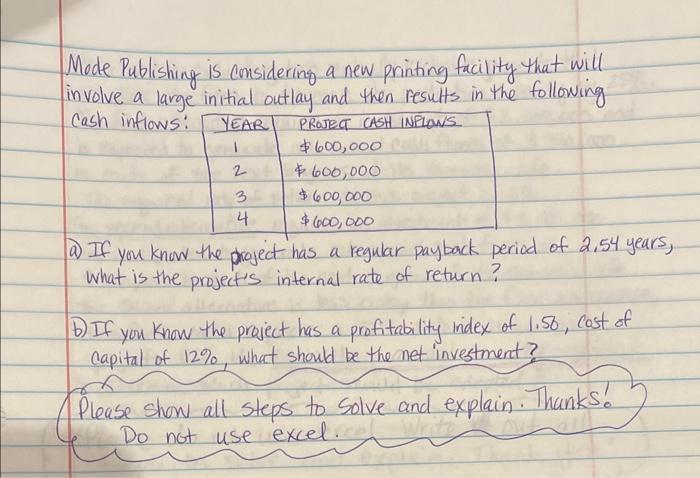 Mode Publishing is considering a new printing facility that will
involve a large initial outlay and then results in the following
cash inflows:
YEAR PROJECT CASH INFLOWS
1 $600,000
2 $600,000
3 $600,000
4 $600,000
a) If you know the project has a regular payback period of 2.54 years,
what is the project's internal rate of return?
b) If you know the project has a profitability index of 1.56, cost of
capital of 12%, what should be the net investment?
Please show all steps to solve and explain. Thanks!
Do not use excel.